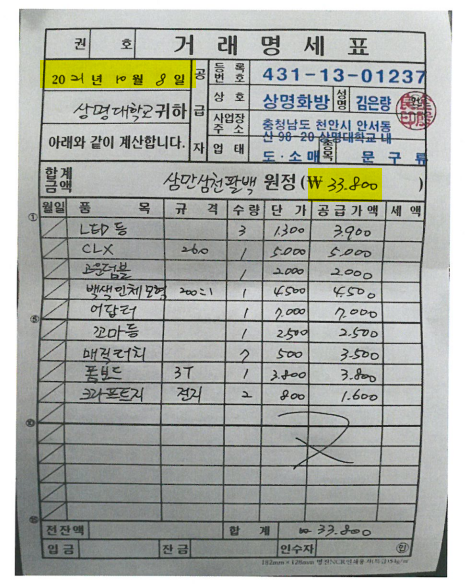 권 호 거 래 명 세 표
2021년 10월 8일
상명대학교 귀하
아래와 같이 계산합니다.
공급자
등록번호 431-13-01237
상호 상명화방 성명 김은랑
사업장주소 충청남도 천안시 안서동
산 98-20 상명대학교 내
업태 도·소매 종목 문구류
합계금액 삼만삼천팔백 원정 (₩ 33.800 )
월일 품 목 규 격 수량 단 가 공급가액 세 액
① LED등 3 1.300 3.900
CLX 260 1 5.000 5.000
고운덤블 1 2.000 2.000
백색인체모형 200:1 1 4500 4.500
⑤ 어답터 1 7.000 7.000
꼬마등 1 2500 2.500
매직터치 7 500 3.500
폼보드 3T 1 3.800 3.800
크라프트지 전지 2 800 1.600
⑩
⑮
전잔액 합 계 ₩ 33.800
입금 잔금 인수자 ㊞